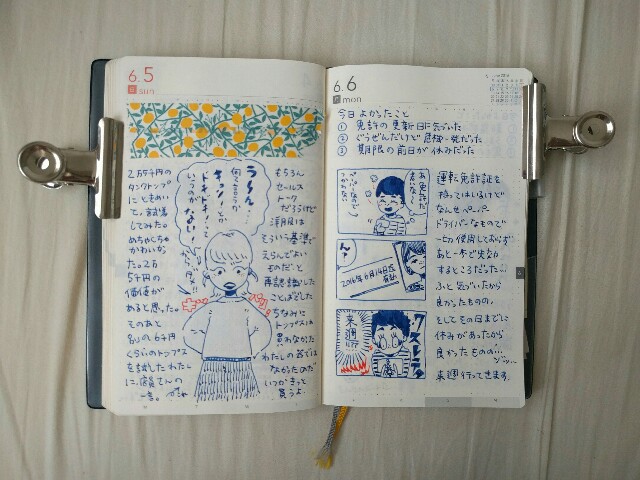 6.5
日 sun
2万5千円の
タンクトップ
にときめい
て、試着
してみた。
めちゃくちゃ
かわいか
った。2万
5千円の
価値が
あると思った。
そのあと
名しの6千円
くらいのトップス
を試着したわたし
に、店員さんの
一言。
う〜ん、
何て言うか
キュン！とか
ドキドキ！って
いうのが、ない！
もちろん
セールス
トーク
だろうけど
洋服は
そういう基準で
えらんでよい
ものだと
再認識した
ことばでした
ちなみに
トップスは
買わなかった
わたしの器では
なかったのだ
いつかきっと
買うよ
6.6
月 mon
今日よかったこと
① 免許の更新日に気づいた
② ぐうぜんだけど危機一髪だった
③ 期限の前日が休みだった
運転免許証を
持ってはいるけど
なんせペーパー
ドライバーなもので
一切使用しておらず
あと一歩で失効
するところだった…
ふと気づいたから
良かったものの、
そしてその日までに
休みがあったから
良かったものの…
ゾッ…
来週行ってきます。
ん？
2016年6月14日まで
有効
来週行く